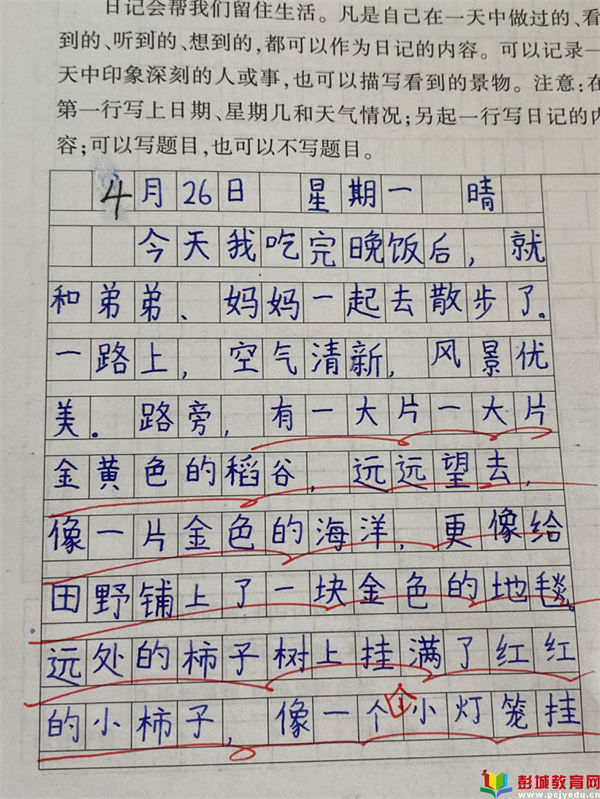 日记会帮我们留住生活。凡是自己在一天中做过的、看
到的、听到的、想到的,都可以作为日记的内容。可以记录一
天中印象深刻的人或事,也可以描写看到的景物。注意:在
第一行写上日期、星期几和天气情况;另起一行写日记的内
容;可以写题目,也可以不写题目。
4月26日 星期一 晴
今天我吃完晚饭后,就
和弟弟、妈妈一起去散步了。
一路上,空气清新,风景优
美。路旁,有一大片一大片
金黄色的稻谷,远远望去,
像一片金色的海洋,更像给
田野铺上了一块金色的地毯。
远处的柿子树上挂满了红红
的小柿子,像一个个小灯笼挂
彭城教育网
www.pcjyedu.cn